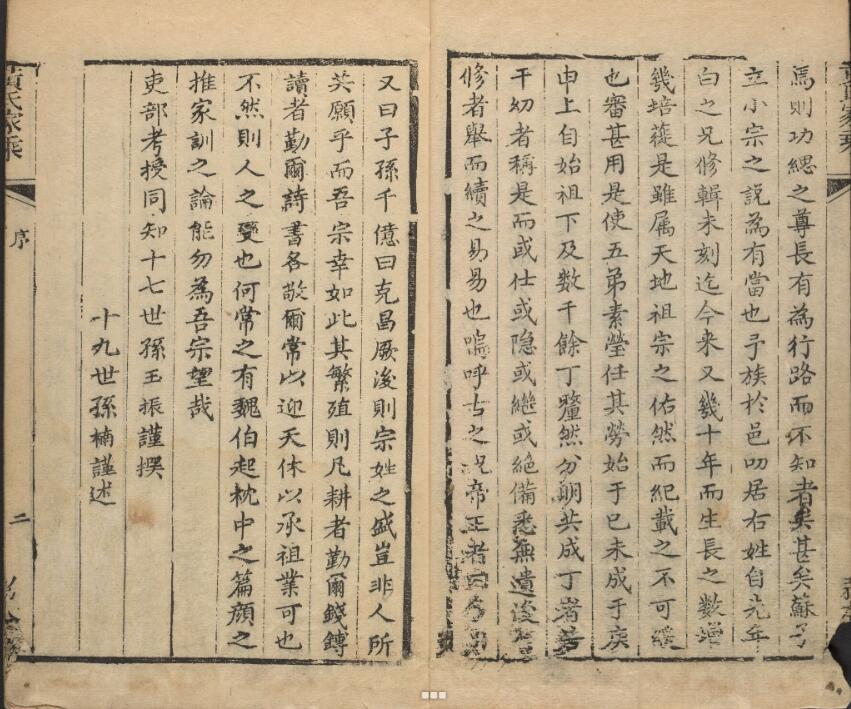 焉則功緦之尊長有為行路而不知者矣甚矣蘇子
立小宗之說為有當也予族於邑叨居右姓自先年
白之兄修輯未刻迄今来又幾十年而生長之數增
幾培蓰是雖属天地祖宗之佑然而紀載之不可緩
也審甚用是使五弟素瑩任其勞始于己未成于庚
申上自始祖下及数千餘丁釐然分明共成丁者若
干幼者稱是而或仕或隐或繼或絶備悉無遺後
修者舉而續之易易也嗚呼古之祝帝王者曰多男
又曰子孫千億曰克昌厥後則宗姓之盛豈非人所
共願乎而吾宗幸如此其繁殖則凡耕者勤爾錢鎛
讀者勤爾詩書各敬爾常以迎天休以承祖業可也
不然則人之變也何常之有魏伯起枕中之篇顔之
推家訓之論能勿為吾宗望哉
吏部考授同知十七世孫玉振謹撰
十九世孫楠謹述
黃氏家乘
序
二